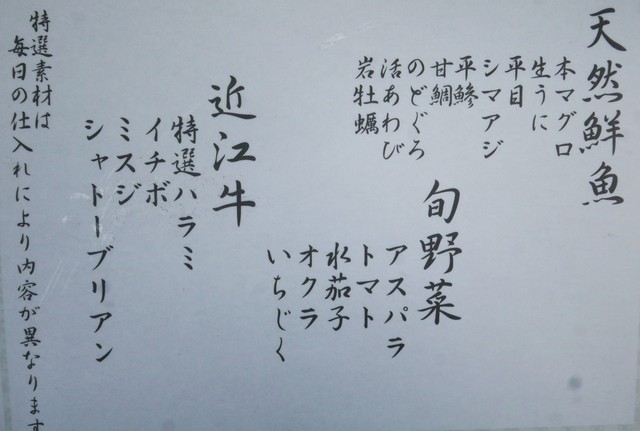 天然鮮魚
本マグロ
生うに
平目
シマアジ
平鯵
甘鯛
のどぐろ
活あわび
岩牡蠣
旬野菜
アスパラ
トマト
水茄子
オクラ
いちじく
近江牛
特選ハラミ
イチボ
ミスジ
シャトーブリアン
特選素材は
毎日の仕入れにより内容が異なります